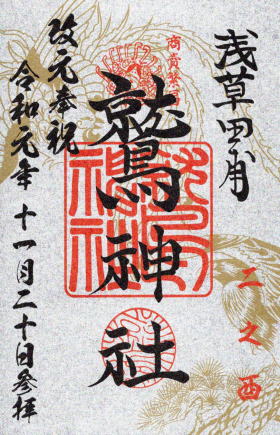 浅草田甫
二之酉
商売繁
鷲神社
改元奉祝
令和元年 十一月二十日参拝